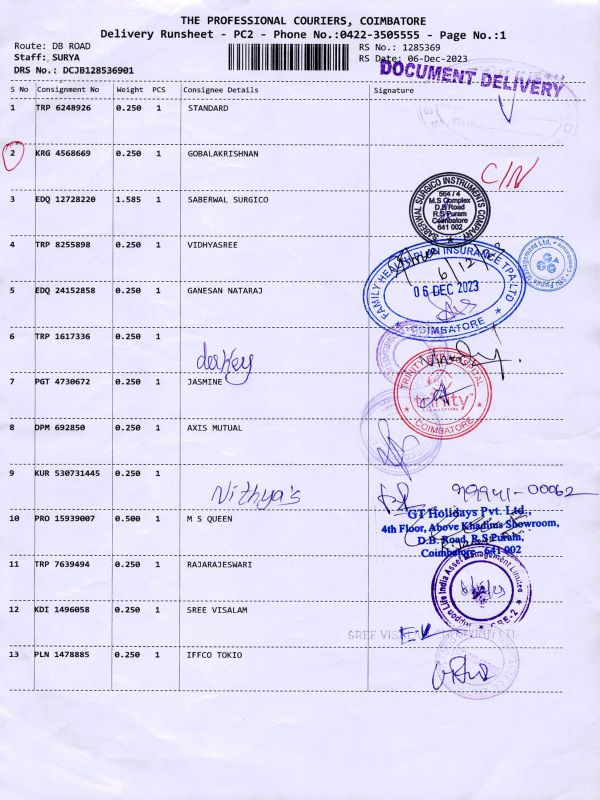 THE PROFESSIONAL COURIERS, COIMBATORE
Delivery Runsheet - PC2 - Phone No.:0422-3505555 - Page No.:1
Route: DB ROAD
RS No.: 1285369
Staff: SURYA
RS Date: 06-Dec-2023
DRS No.: DCJB128536901
DOCUMENT DELIVERY
S No Consignment No Weight PCS Consignee Details Signature
1 TRP 6248926 0.250 1 STANDARD
2 KRG 4568669 0.250 1 GOBALAKRISHNAN
C/N
3 EDQ 12728220 1.585 1 SABERWAL SURGICO
SABERWAL SURGICO INSTRUMENTS COMPANY
564 / 4
M.S Complex
D.B Road
R.S Puram
Coimbatore
641 002
4 TRP 8255898 0.250 1 VIDHYASREE
FAMILY HEALTH PLAN INSURANCE TPA LTD
6/12/23
06 DEC 2023
COIMBATORE
5 EDQ 24152858 0.250 1 GANESAN NATARAJ
6 TRP 1617336 0.250 1
7 PGT 4730672 0.250 1 JASMINE
trinity
COIMBATORE
8 DPM 692850 0.250 1 AXIS MUTUAL
9 KUR 530731445 0.250 1
Nithya's
10 PRO 15939007 0.500 1 M S QUEEN
GT Holidays Pvt. Ltd.,
4th Floor, Above Khadims Showroom,
D.B. Road, R.S Puram,
Coimbatore - 641 002
11 TRP 7639494 0.250 1 RAJARAJESWARI
Nippon Life India Asset Management Limited
CBE-2
12 KDI 1496058 0.250 1 SREE VISALAM
13 PLN 1478885 0.250 1 IFFCO TOKIO